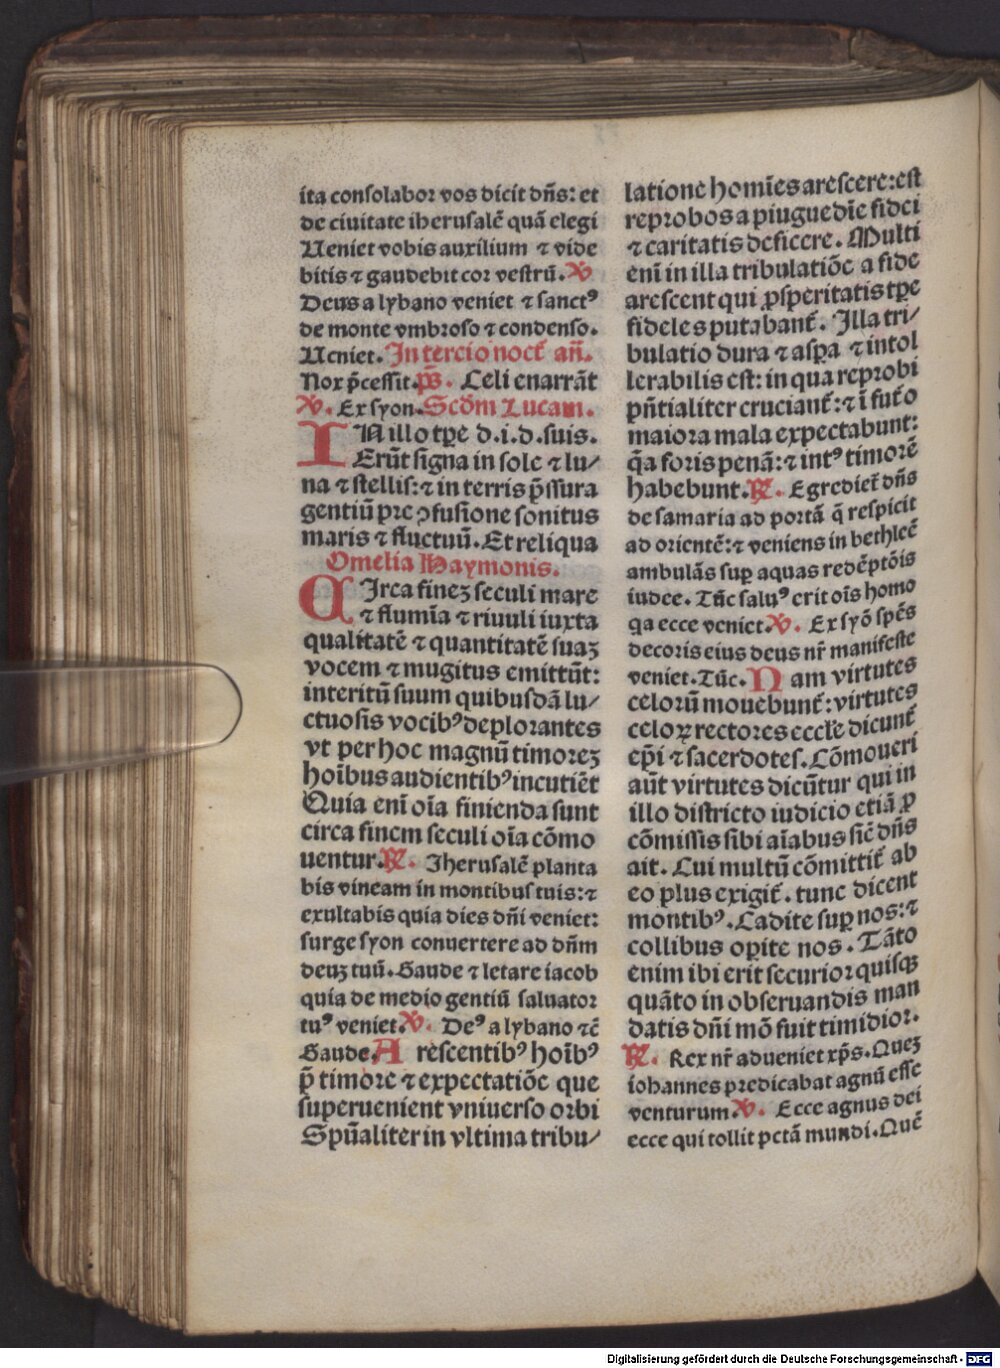 ita consolabor vos dicit dn̄s: et
de ciuitate iherusalē quā elegi
Ueniet vobis auxilium ⁊ vide
bitis ⁊ gaudebit cor vestrū. ℣
Deus a lybano veniet ⁊ sanctꝰ
de monte vmbroso ⁊ condenso.
Ueniet. In tercio noct̄ an̄.
Nox p̄cessit. p̄s. Celi enarrāt
℣. Ex syon. Scd̄m Lucam.
IN illo tp̄e d.i.d.suis.
Erūt signa in sole ⁊ lu/
na ⁊ stellis: ⁊ in terris p̄ssura
gentiū pre ꝯfusione sonitus
maris ⁊ fluctuū. Et reliqua
Omelia Haymonis.
CIrca finez seculi mare
⁊ flumīa ⁊ riuuli iuxta
qualitatē ⁊ quantitatē suaz
vocem ⁊ mugitus emittūt:
interitū suum quibusdā lu/
ctuosis vocibꝰ deplorantes
vt per hoc magnū timorez
hoībus audientibꝰ incutiēt
Quia enī oīa finienda sunt
circa finem seculi oīa cōmo
uentur. ℟. Jherusalē planta
bis vineam in montibus tuis: ⁊
exultabis quia dies dn̄i veniet:
surge syon conuertere ad dn̄m
deuz tuū. Gaude ⁊ letare iacob
quia de medio gentiū saluator
tuꝰ veniet. ℣. Deꝰ a lybano ⁊c̄
Gaude. Arescentibꝰ hoībꝰ
p̄ timore ⁊ expectatiōe que
superuenient vniuerso orbi
Spūaliter in vltima tribu/
latione homīes arescere: est
reprobos a pinguedīe fidei
⁊ caritatis deficere. Multi
enī in illa tribulatiōe a fide
arescent qui ꝓsperitatis tp̄e
fideles putabant̄. Illa tri/
bulatio dura ⁊ aspa ⁊ intol
lerabilis est: in qua reprobi
pn̄tialiter cruciant̄: ⁊ ī fut̄o
maiora mala expectabunt:
q̄a foris penā: ⁊ intꝰ timorē
habebunt. ℟. Egrediet̄ dn̄s
de samaria ad portā q̄ respicit
ad orientē: ⁊ veniens in bethleē
ambulās suꝑ aquas redēptōis
iudee. Tūc saluꝰ erit oīs homo
qa ecce veniet. ℣. Ex syō spēs
decoris eius deus nr̄ manifeste
veniet. Tūc. Nam virtutes
celorū mouebunt̄: virtutes
celoꝝ rectores eccle dicunt̄
ep̄i ⁊ sacerdotes. Cōmoueri
aūt virtutes dicūtur qui in
illo districto iudicio etiā ꝑ
cōmissis sibi aīabus sic̄ dn̄s
ait. Cui multū cōmittit̄ ab
eo plus exigit̄. tunc dicent
montibꝰ. Cadite suꝑ nos: ⁊
collibus oꝑite nos. Tāto
enim ibi erit securior quisqꝫ
quāto in obseruandis man
datis dn̄i mō fuit timidior.
℟. Rex nr̄ adueniet xp̄s. Quez
iohannes predicabat agnū esse
venturum. ℣. Ecce agnus dei
ecce qui tollit pctā mundi. Quē
Digitalisierung gefördert durch die Deutsche Forschungsgemeinschaft - DFG